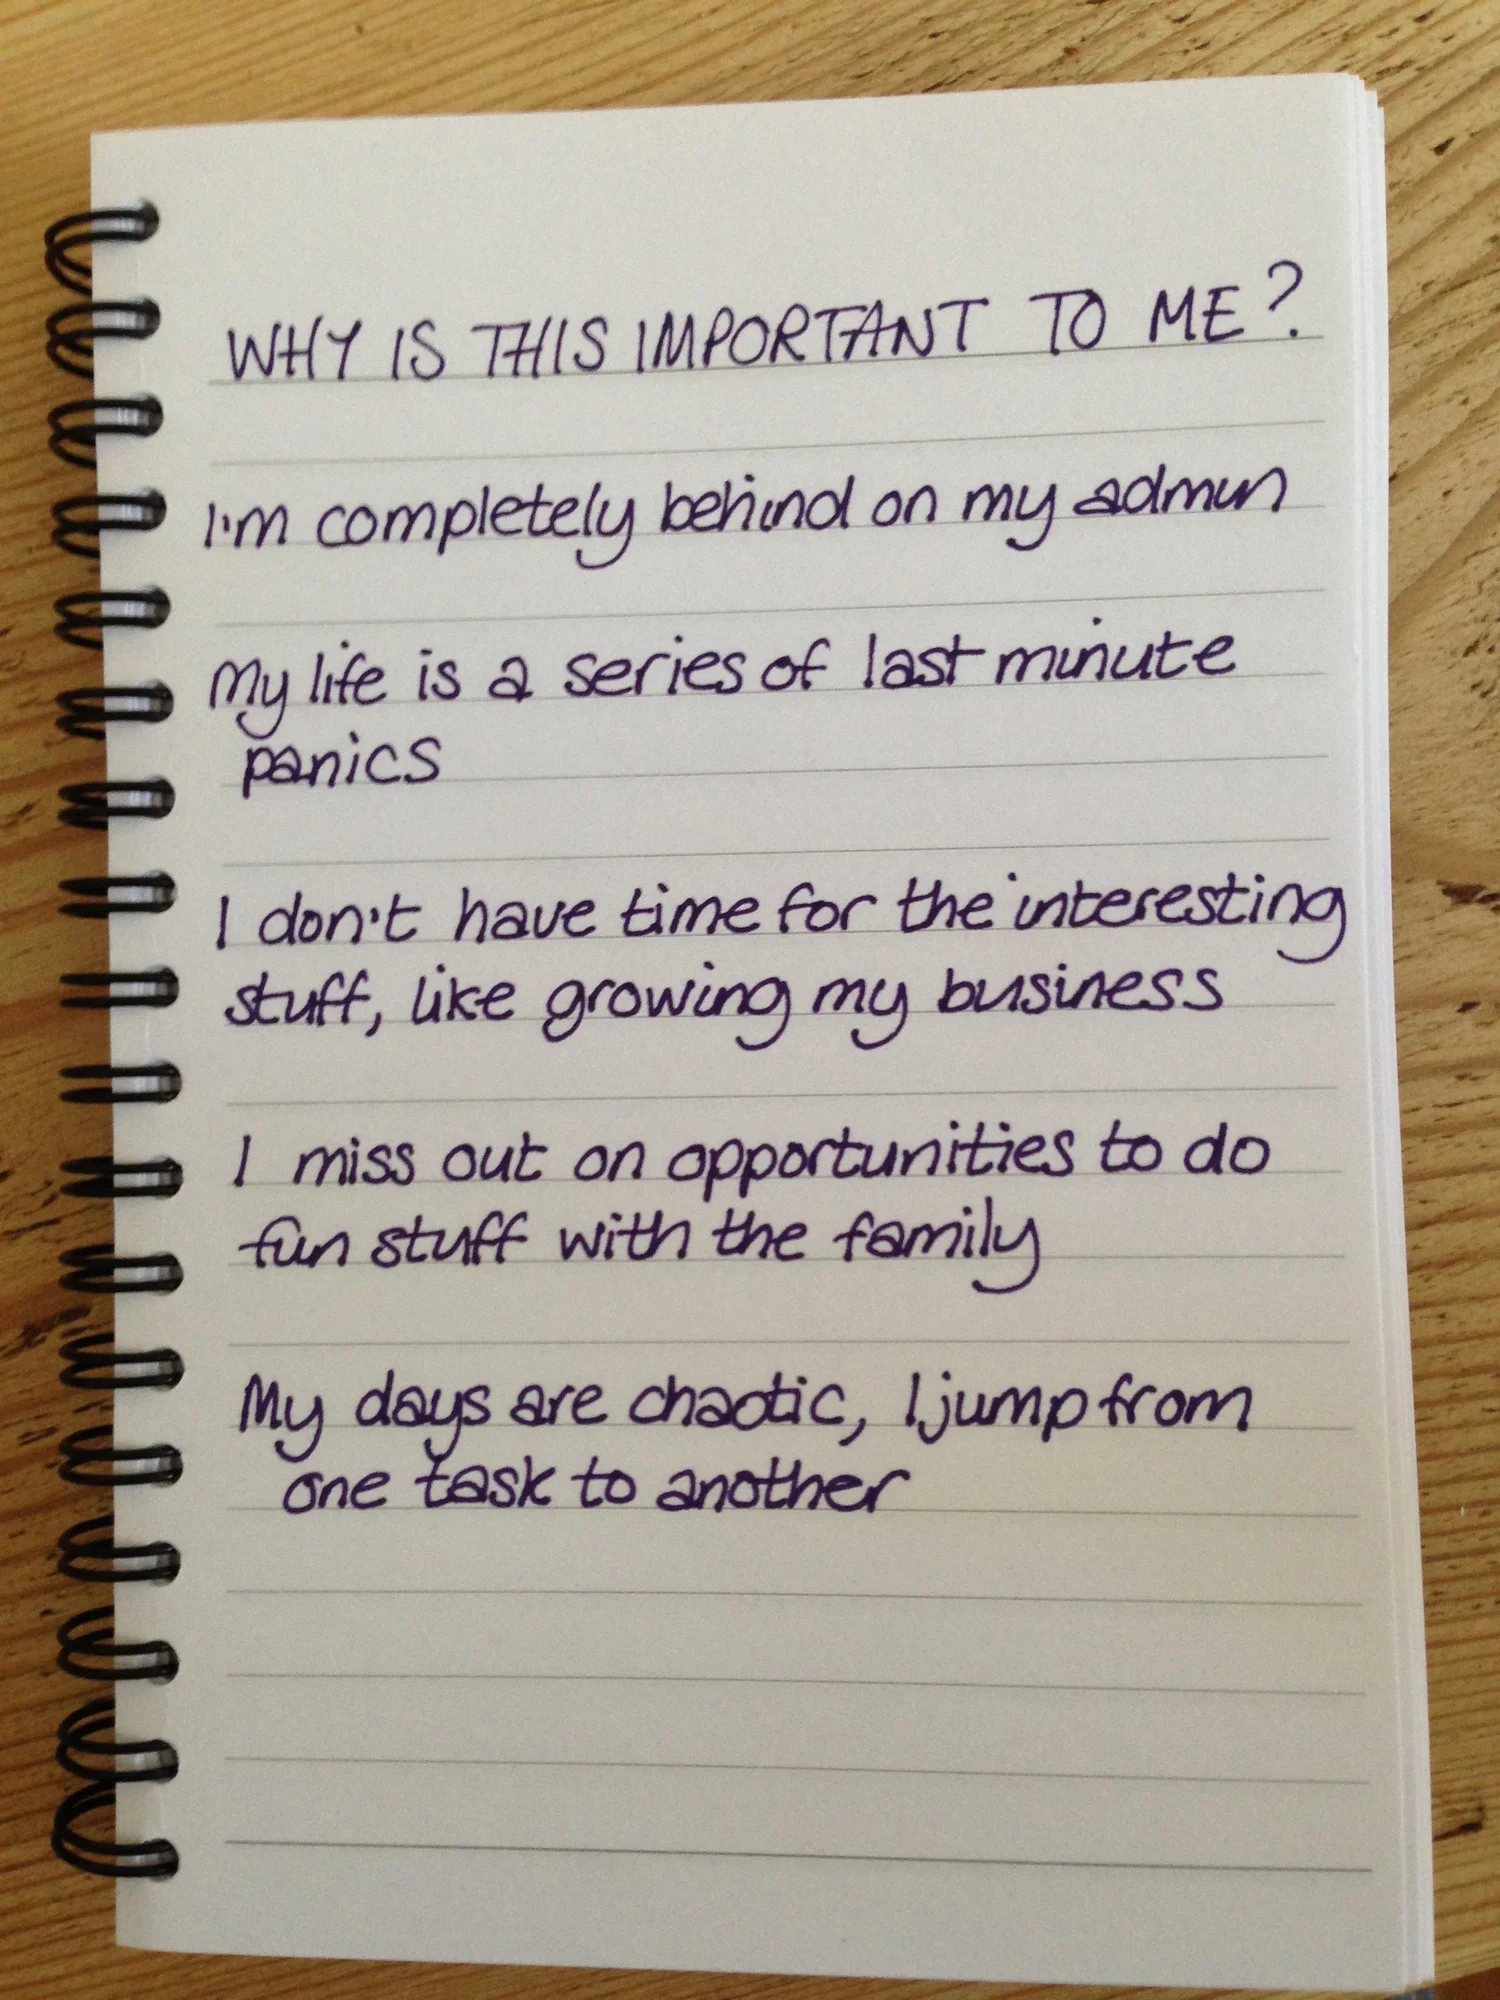 WHY IS THIS IMPORTANT TO ME?
I'm completely behind on my admin
My life is a series of last minute
panics
I don't have time for the interesting
stuff, like growing my business
I miss out on opportunities to do
fun stuff with the family
My days are chaotic, I jump from
one task to another